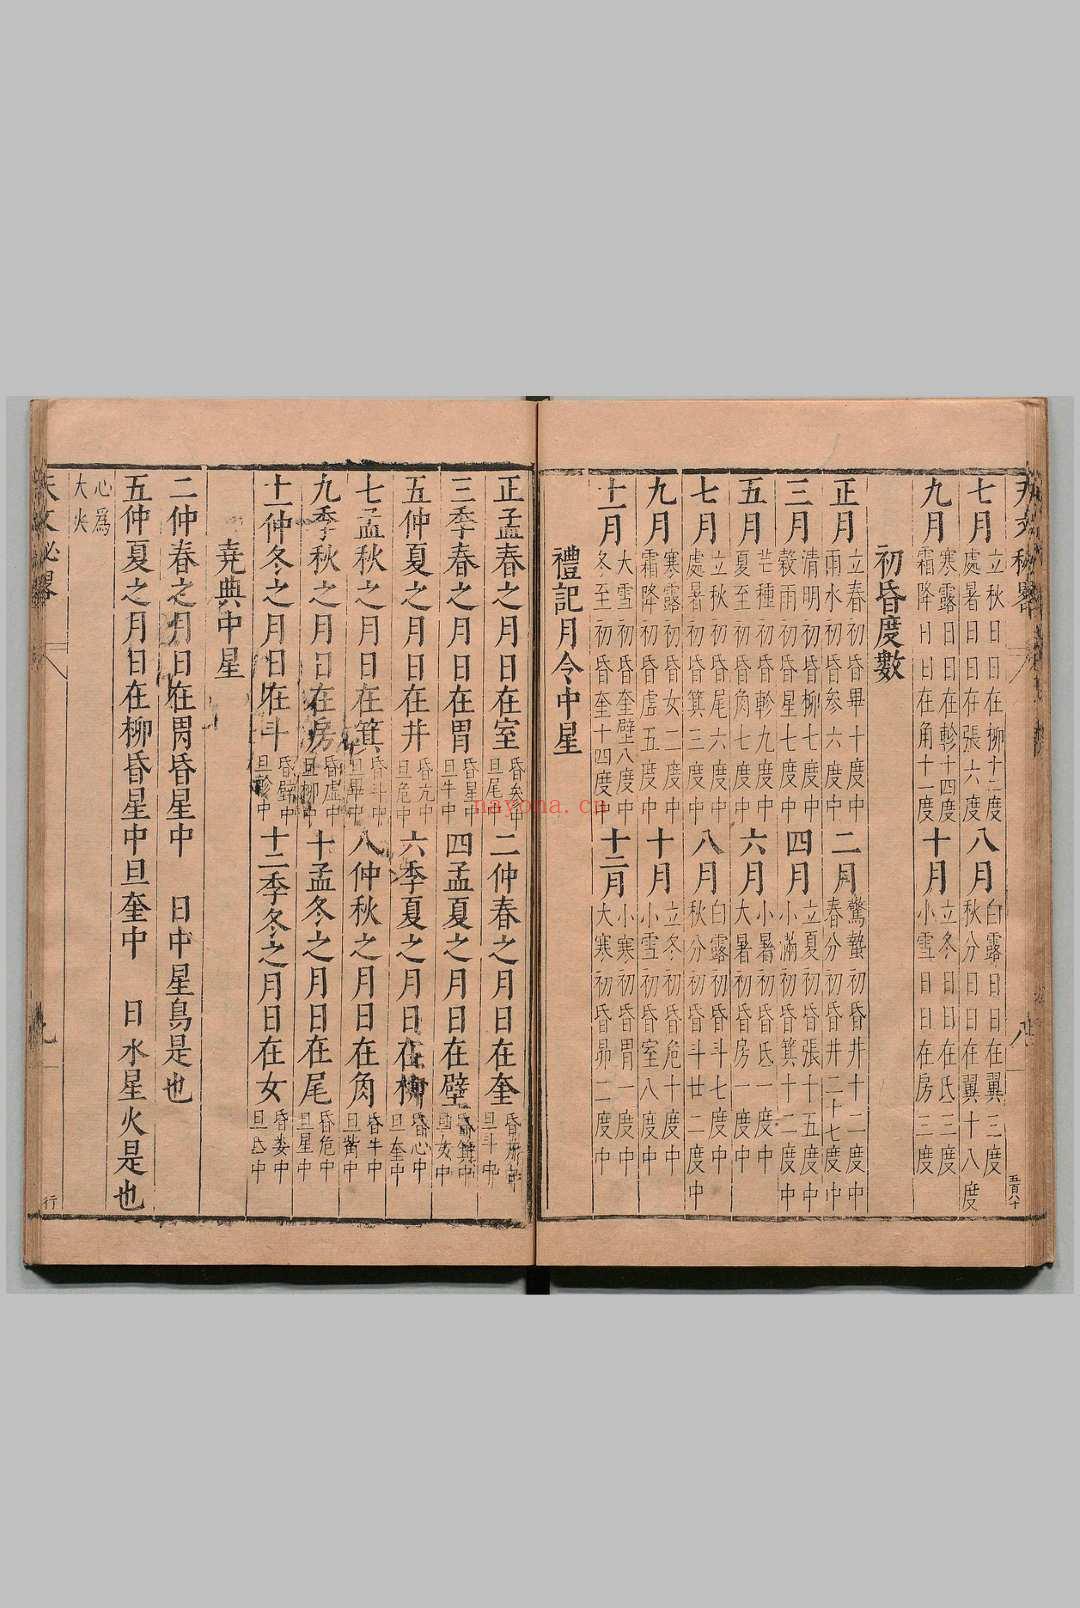 七月立秋日日在柳十二度處暑日日在張六度八月白露日日在翼三度秋分日日在翼十八度
九月寒露日日在軫十四度霜降日日在角十一度十月立冬日日在氐三度小雪日日在房三度
初昏度數
正月立春初昏畢十度中雨水初昏參六度中二月驚蟄初昏井十二度中春分初昏井二十七度中
三月清明初昏柳七度中穀雨初昏星七度中四月立夏初昏張十五度中小滿初昏箕十二度中
五月芒種初昏軫九度中夏至初昏角七度中六月小暑初昏氐度中大暑初昏房一度中
七月立秋初昏尾六度中處暑初昏箕三度中八月白露初昏斗七度中秋分初昏斗廿二度中
九月寒露初昏女二度中霜降初昏虛五度中十月立冬初昏危十度中小雪初昏室八度中
十一月大雪初昏壁八度中冬至初昏奎十四度中十二月小寒初昏胃一度中大寒初昏昴二度中
禮記月令中星
八
五百八十
正孟春之月日在室昏參中旦尾中二仲春之月日在奎昏弧中旦斗中
三季春之月日在胃昏星中旦牛中四孟夏之月日在壁昏箕中旦女中
五仲夏之月日在井昏亢中旦危中六季夏之月日在柳昏心中旦奎中
七孟秋之月日在箕昏斗中旦畢中八仲秋之月日在角昏牛中旦觜中
九季秋之月日在房昏虛中旦柳中十孟冬之月日在尾昏危中旦星中
十一仲冬之月日在斗昏壁中旦軫中十二季冬之月日在女昏婁中旦氐中
堯典中星
二仲春之月日在胃昏星中 日中星鳥是也
五仲夏之月日在柳昏星中旦奎中 日永星火是也
心爲大火
天文秘畧
九
行
nayona.cn